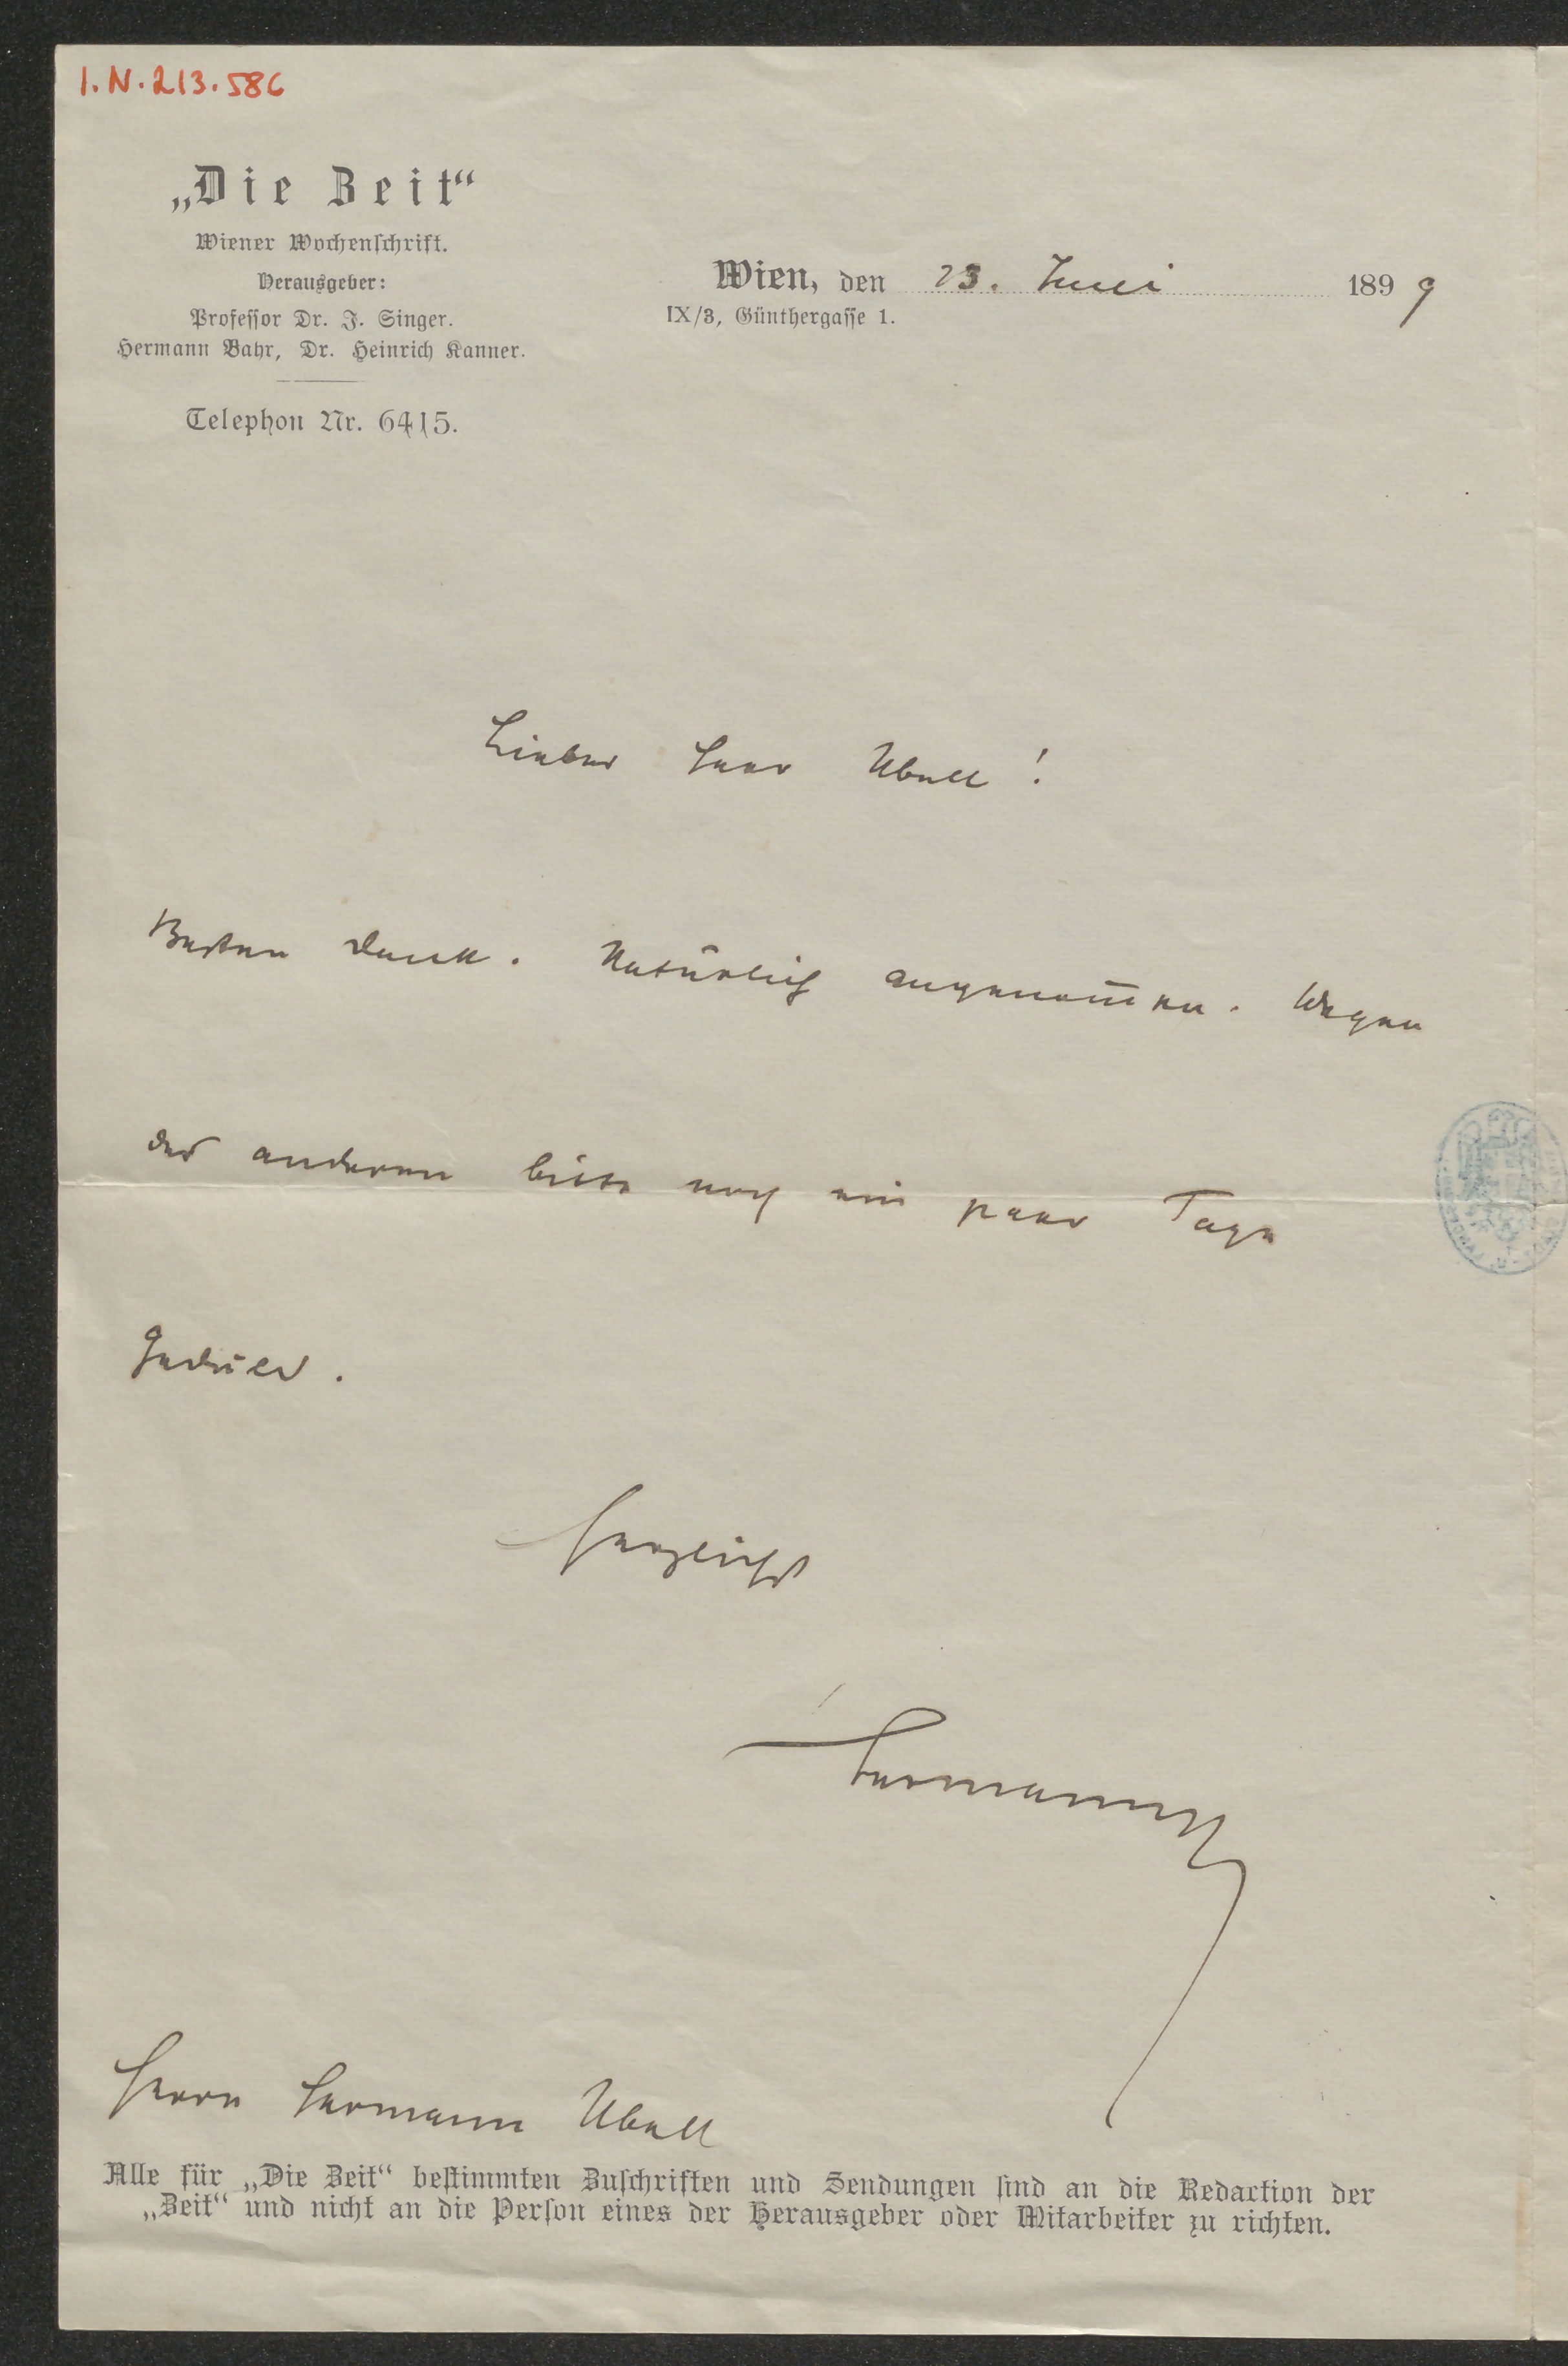 I.N.213.586
„Die Zeit“
Wiener Wochenschrift.
Herausgeber:
Professor Dr. J. Singer.
Hermann Bahr, Dr. Heinrich Kanner.
Telephon Nr. 6415.
Wien, den 23. Juni 1899
IX/3, Günthergasse 1.
Lieber Herr Ubell!
Besten Dank. Natürlich angenom̅en. Wegen
des anderen bitte noch ein paar Tage
Geduld.
Herzlichst
Hermann
Herrn Hermann Ubell
Alle für „Die Zeit“ bestimmten Zuschriften und Sendungen sind an die Redaction der
„Zeit“ und nicht an die Person eines der Herausgeber oder Mitarbeiter zu richten.